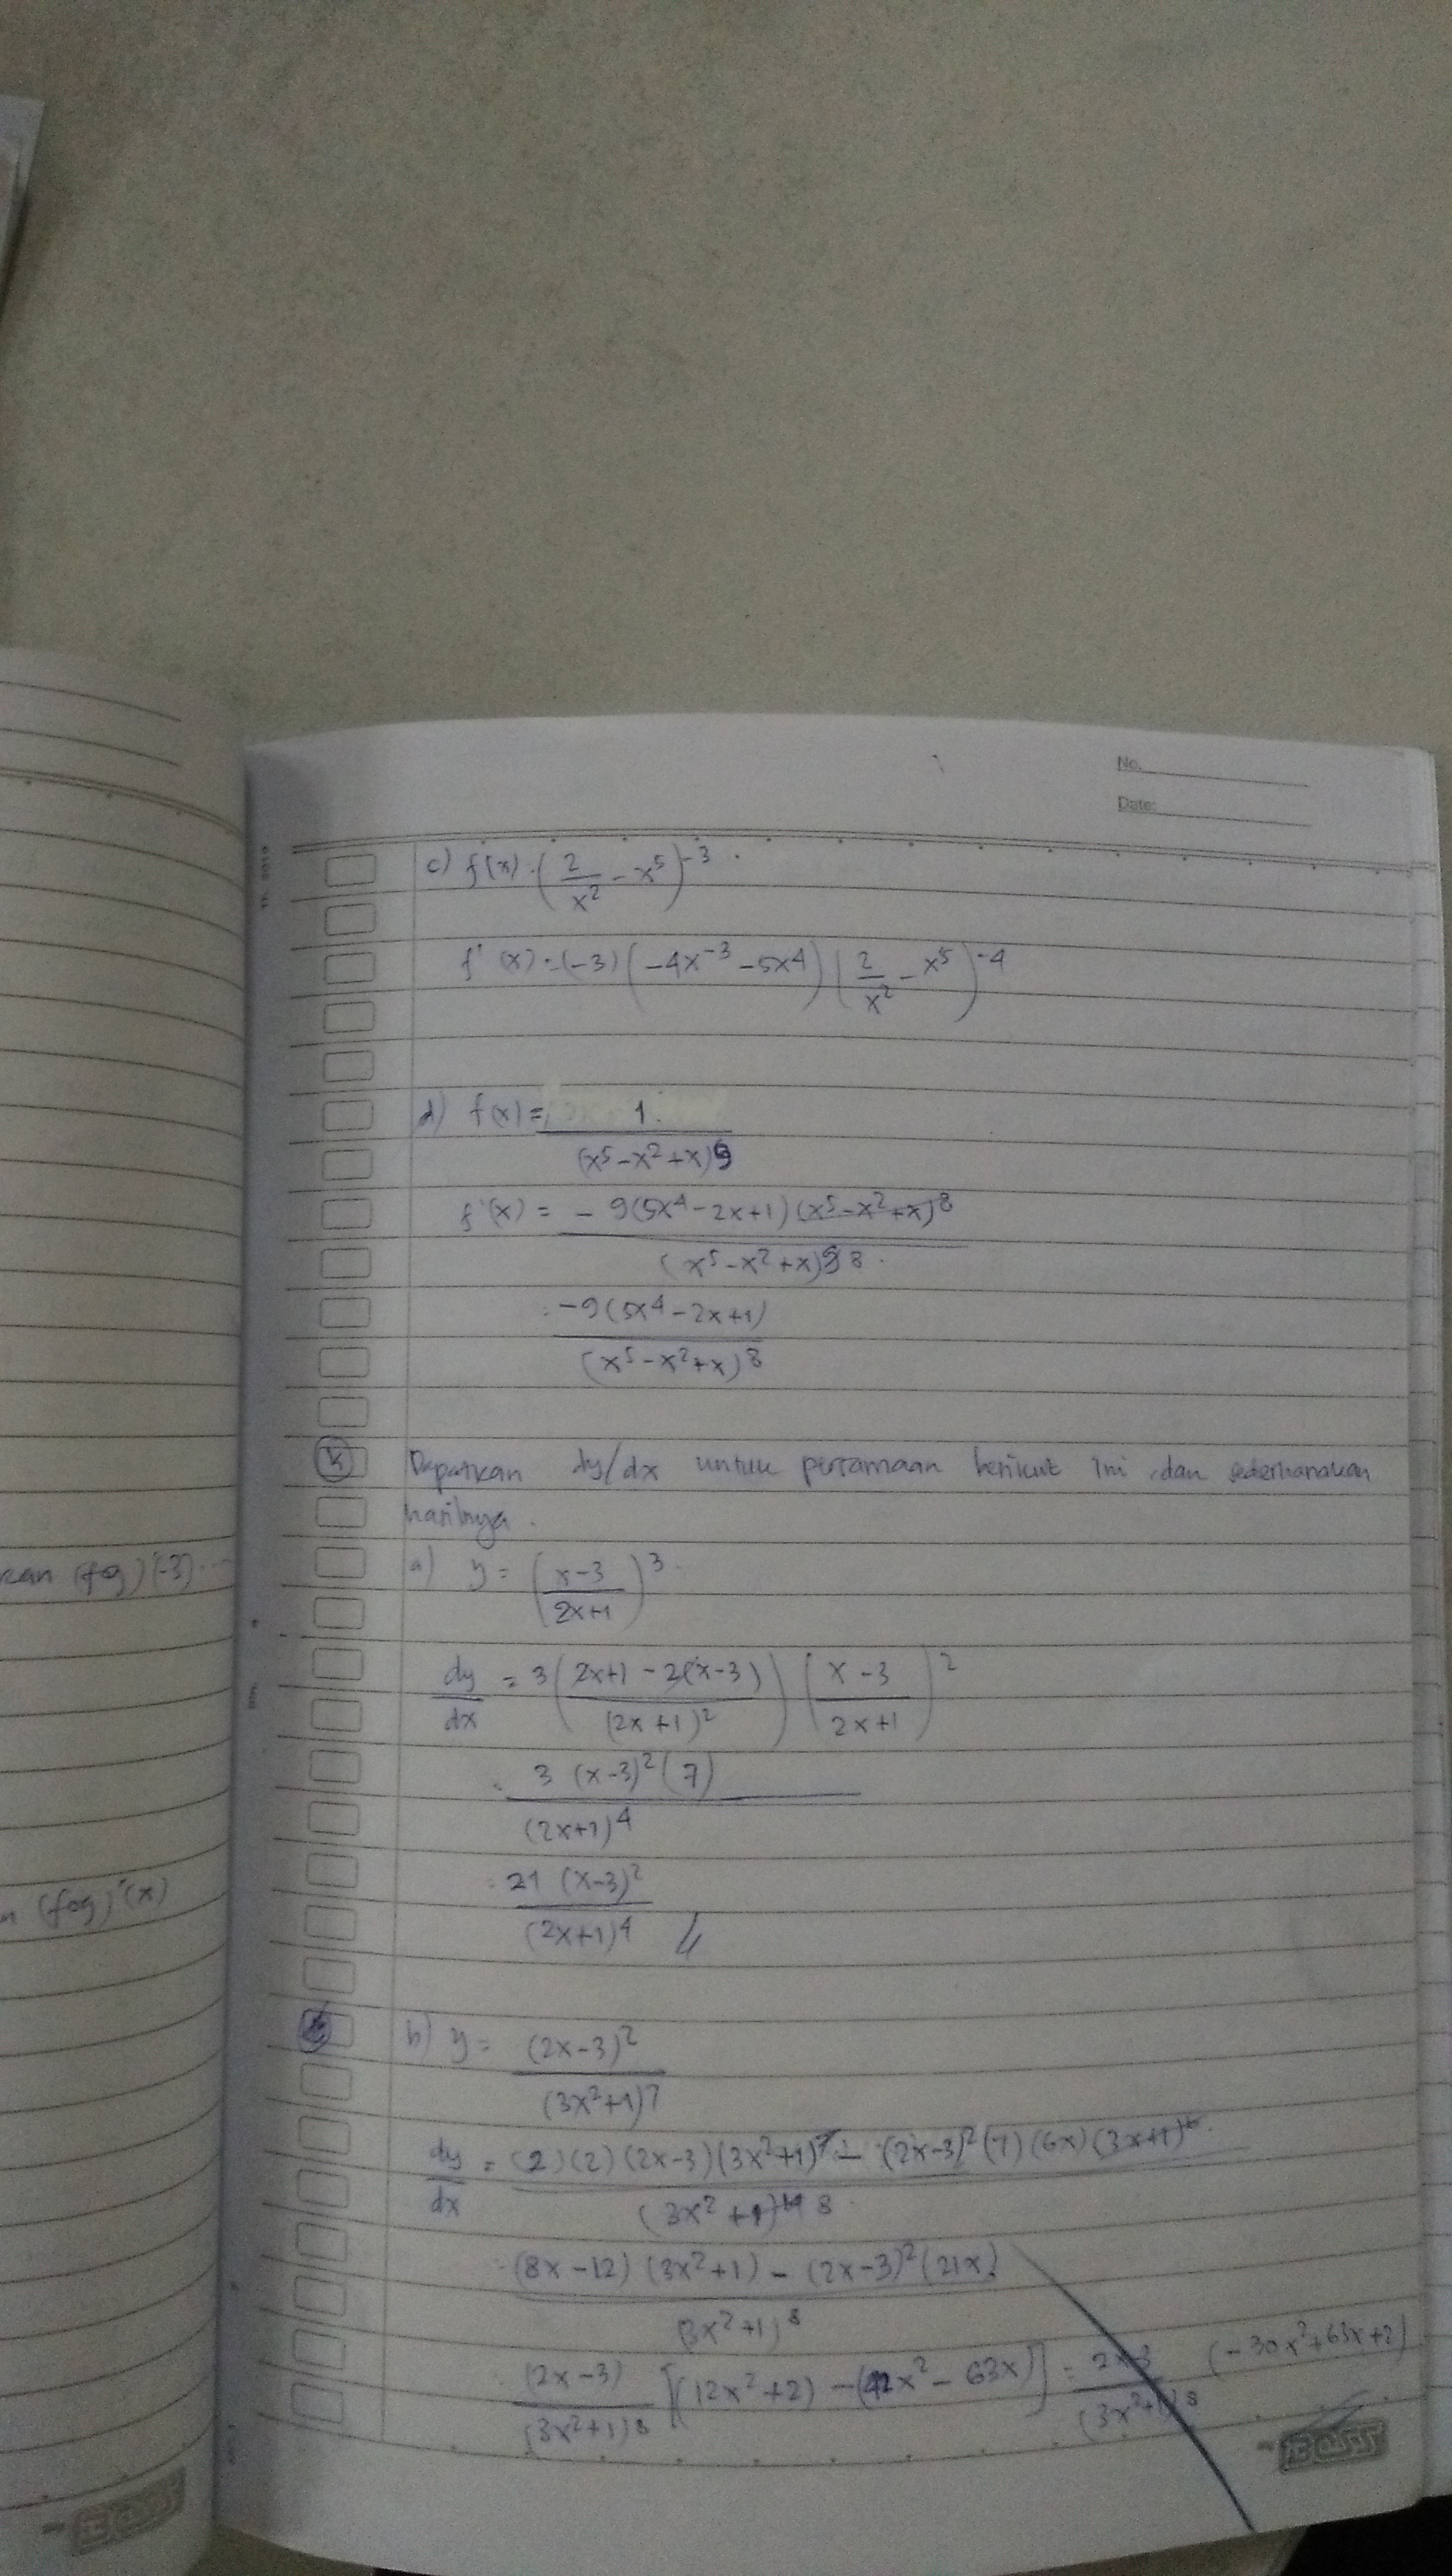 No.
Date:
c) f(x) = (2/x² - x⁵)⁻³
f'(x) = (-3) (-4x⁻³ - 5x⁴) (2/x² - x⁵)⁻⁴
d) f(x) = 1 / (x⁵ - x² + x)⁹
f'(x) = - 9(5x⁴ - 2x + 1) (x⁵ - x² + x)⁸ / (x⁵ - x² + x)
= -9(5x⁴ - 2x + 1) / (x⁵ - x² + x)⁸
Dapatkan dy/dx untuk persamaan berikut ini dan sederhanakan
hasilnya.
a) y = (x-3 / 2x+1)³
dy/dx = 3 (2x+1 - 2(x-3) / (2x+1)²) (x-3 / 2x+1)²
= 3 (x-3)² (7) / (2x+1)⁴
= 21 (x-3)² / (2x+1)⁴
b) y = (2x-3)² / (3x²+1)⁷
dy/dx = (2)(2)(2x-3)(3x²+1)⁷ - (2x-3)² (7)(6x)(3x+1)⁶ / (3x²+1)¹⁴ 8
= (8x-12) (3x²+1) - (2x-3)² (21x) / (3x²+1)⁸
(2x-3) / (3x²+1)⁸ [(12x²+2) - (42x² - 63x)] = 2x-3 / (3x²+1)⁸ (-30x²+63x+2)
BOSS
kan (fog)'(-3)...
(fog)'(x)
BOSS